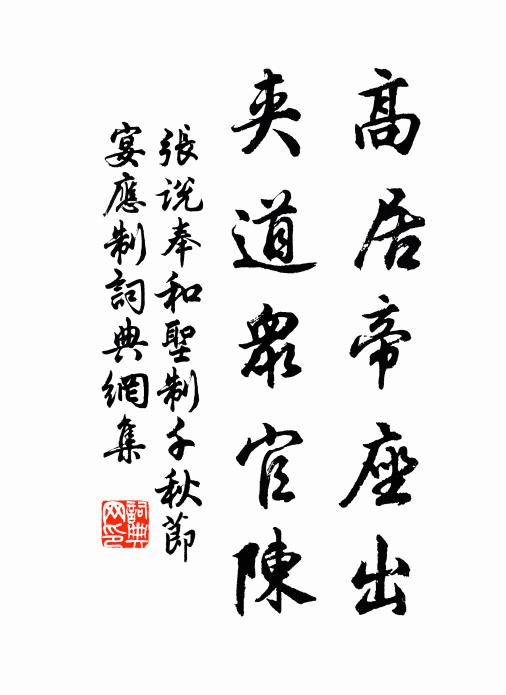 高居帝座出
夾道眾官陳
張說奉和聖制千秋節
宴應制詞典網集
詞典网印